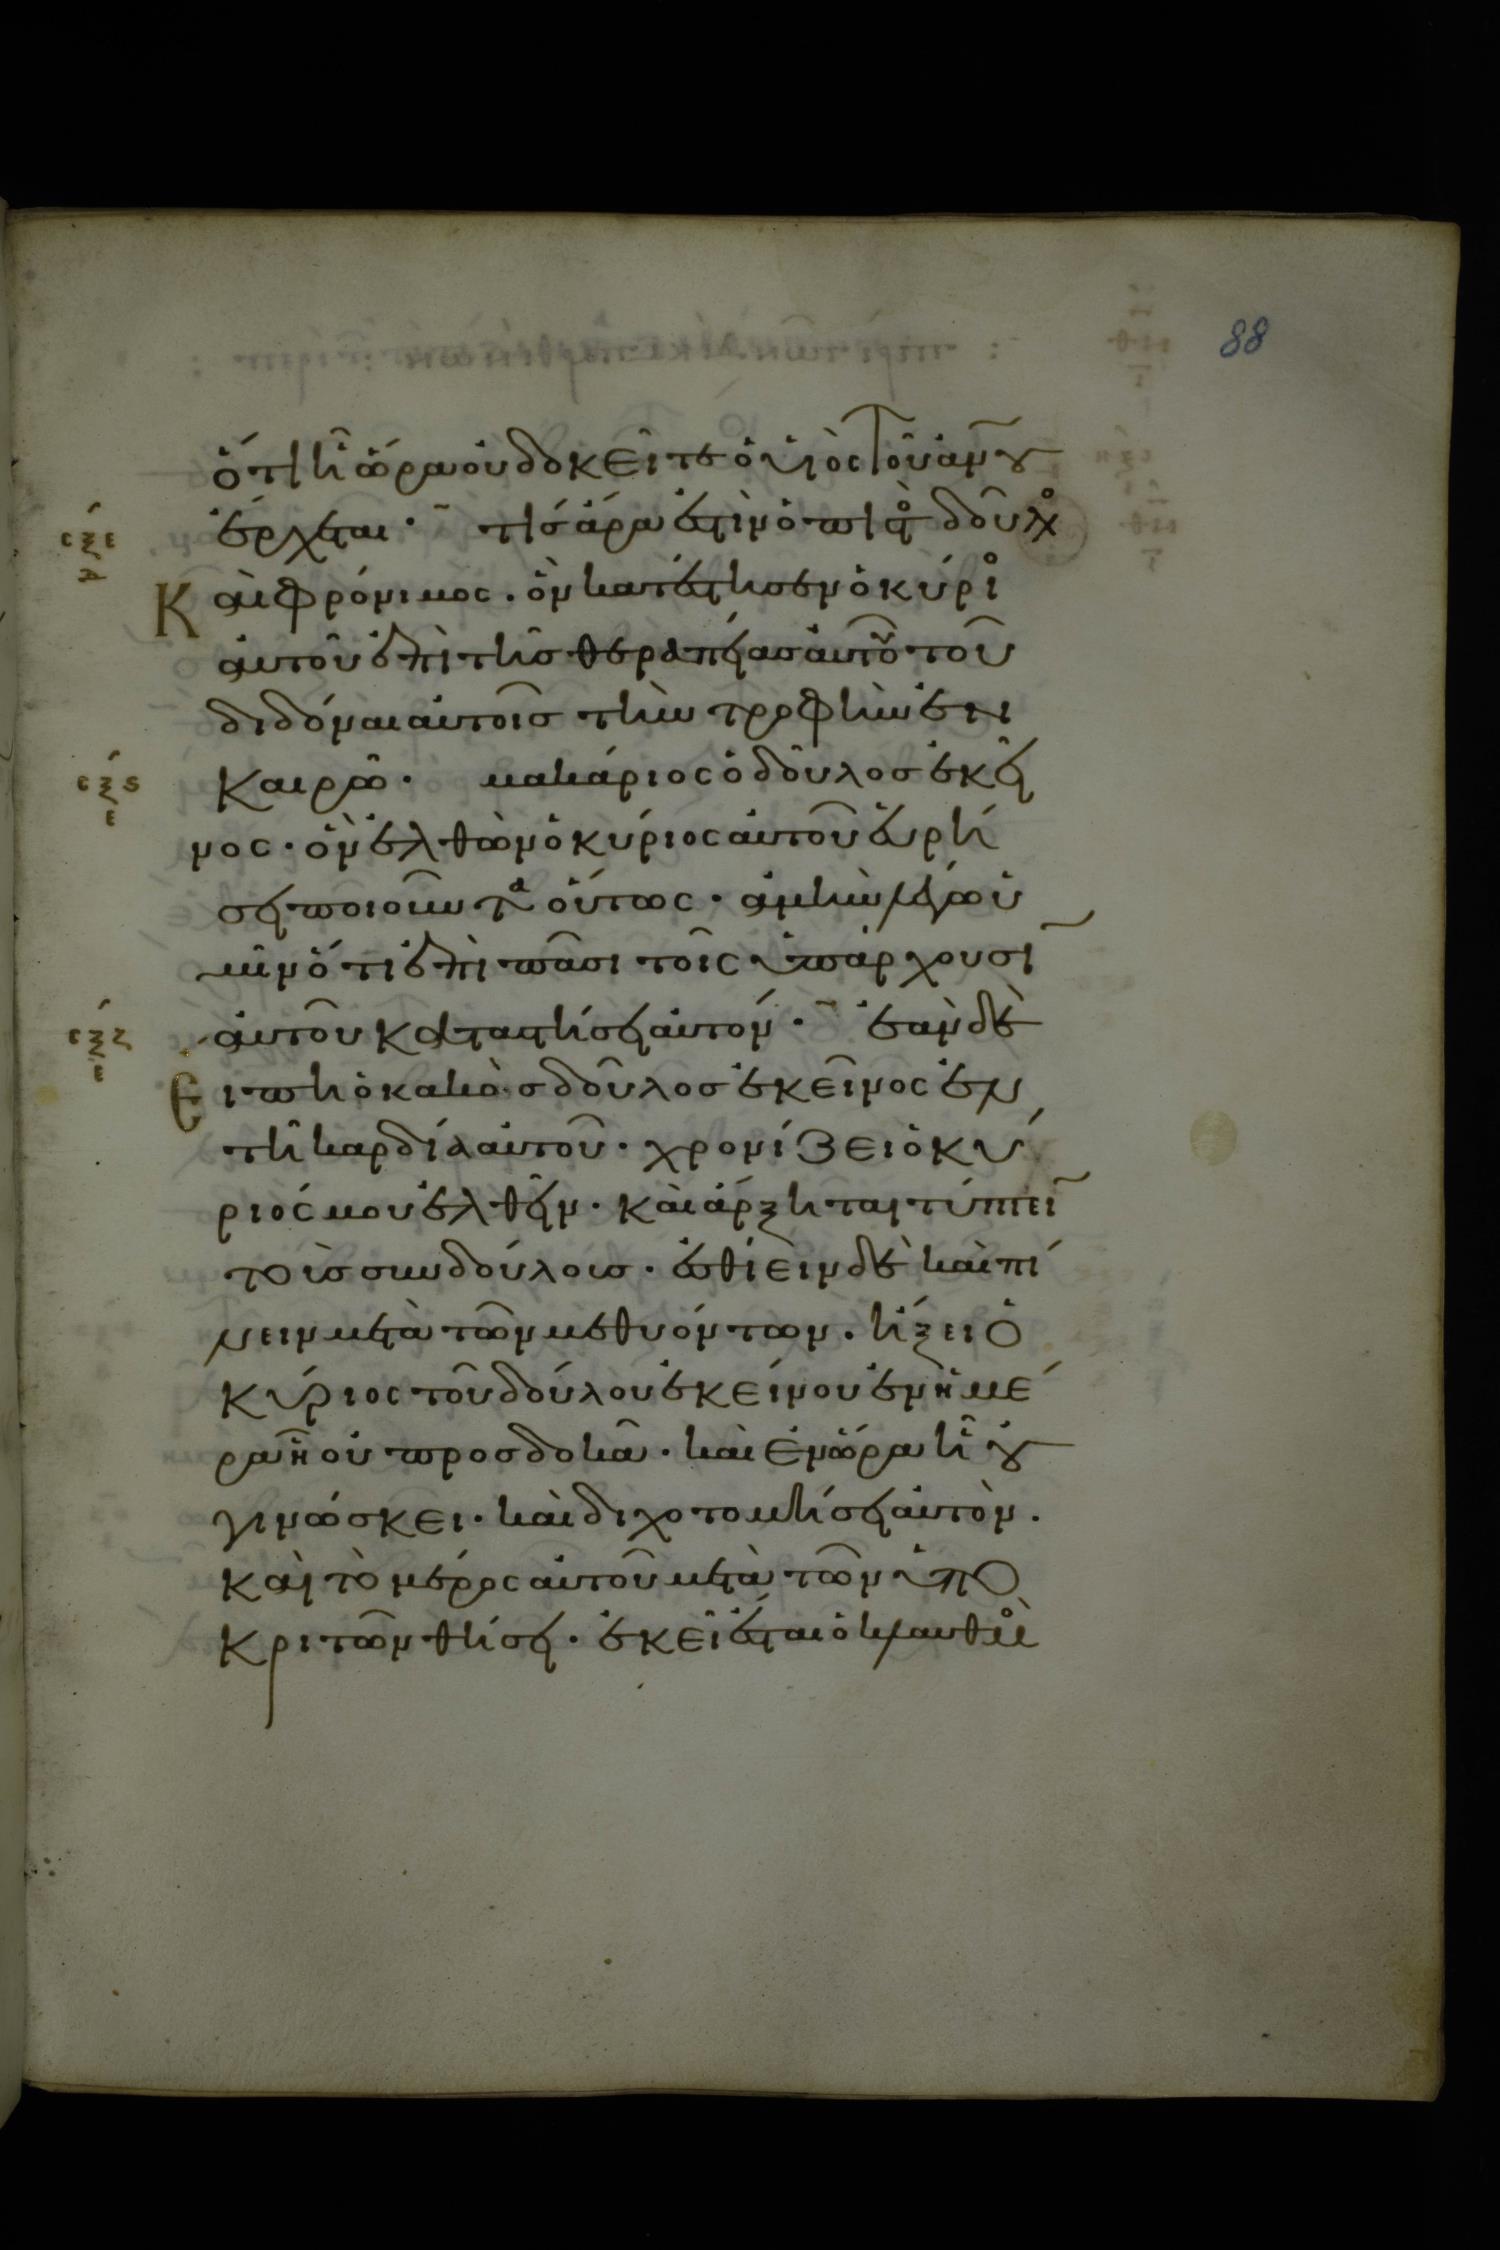 88
ὅτι ἡ ὥρα οὐ δοκεῖτε ὁ υἱὸς τοῦ ἀν̅ου
ἔρχεται· τίς ἄρα ἐστὶν ὁ πιστὸς δοῦλος
Καὶ φρόνιμος· ὃν κατέστησεν ὁ κύριος
αὐτοῦ ἐπὶ τῆς θεραπείας αὐτοῦ τοῦ
διδόναι αὐτοῖς τὴν τροφὴν ἐν
καιρῷ· μακάριος ὁ δοῦλος ἐκεῖ
νος· ὃν ἐλθὼν ὁ κύριος αὐτοῦ εὑρή
σει ποιοῦντα οὕτως· ἀμὴν λέγω ὑ
μῖν ὅτι ἐπὶ πᾶσι τοῖς ὑπάρχουσι
αὐτοῦ καταστήσει αὐτόν· ἐὰν δὲ
Εἴπῃ ὁ κακὸς δοῦλος ἐκεῖνος ἐν
τῇ καρδίᾳ αὐτοῦ· χρονίζει ὁ κύ
ριός μου ἐλθεῖν· καὶ ἄρξηται τύπτειν
τοὺς συνδούλους· ἐσθίειν δὲ καὶ πί
νειν μετὰ τῶν μεθυόντων· ἥξει ὁ
κύριος τοῦ δούλου ἐκείνου ἐν ἡμέ
ρᾳ ᾗ οὐ προσδοκᾷ· καὶ ἐν ὥρᾳ ᾗ οὐ
γινώσκει· καὶ διχοτομήσει αὐτὸν·
καὶ τὸ μέρος αὐτοῦ μετὰ τῶν ὑπο
κριτῶν θήσει· ἐκεῖ ἔσται ὁ κλαυθμὸς